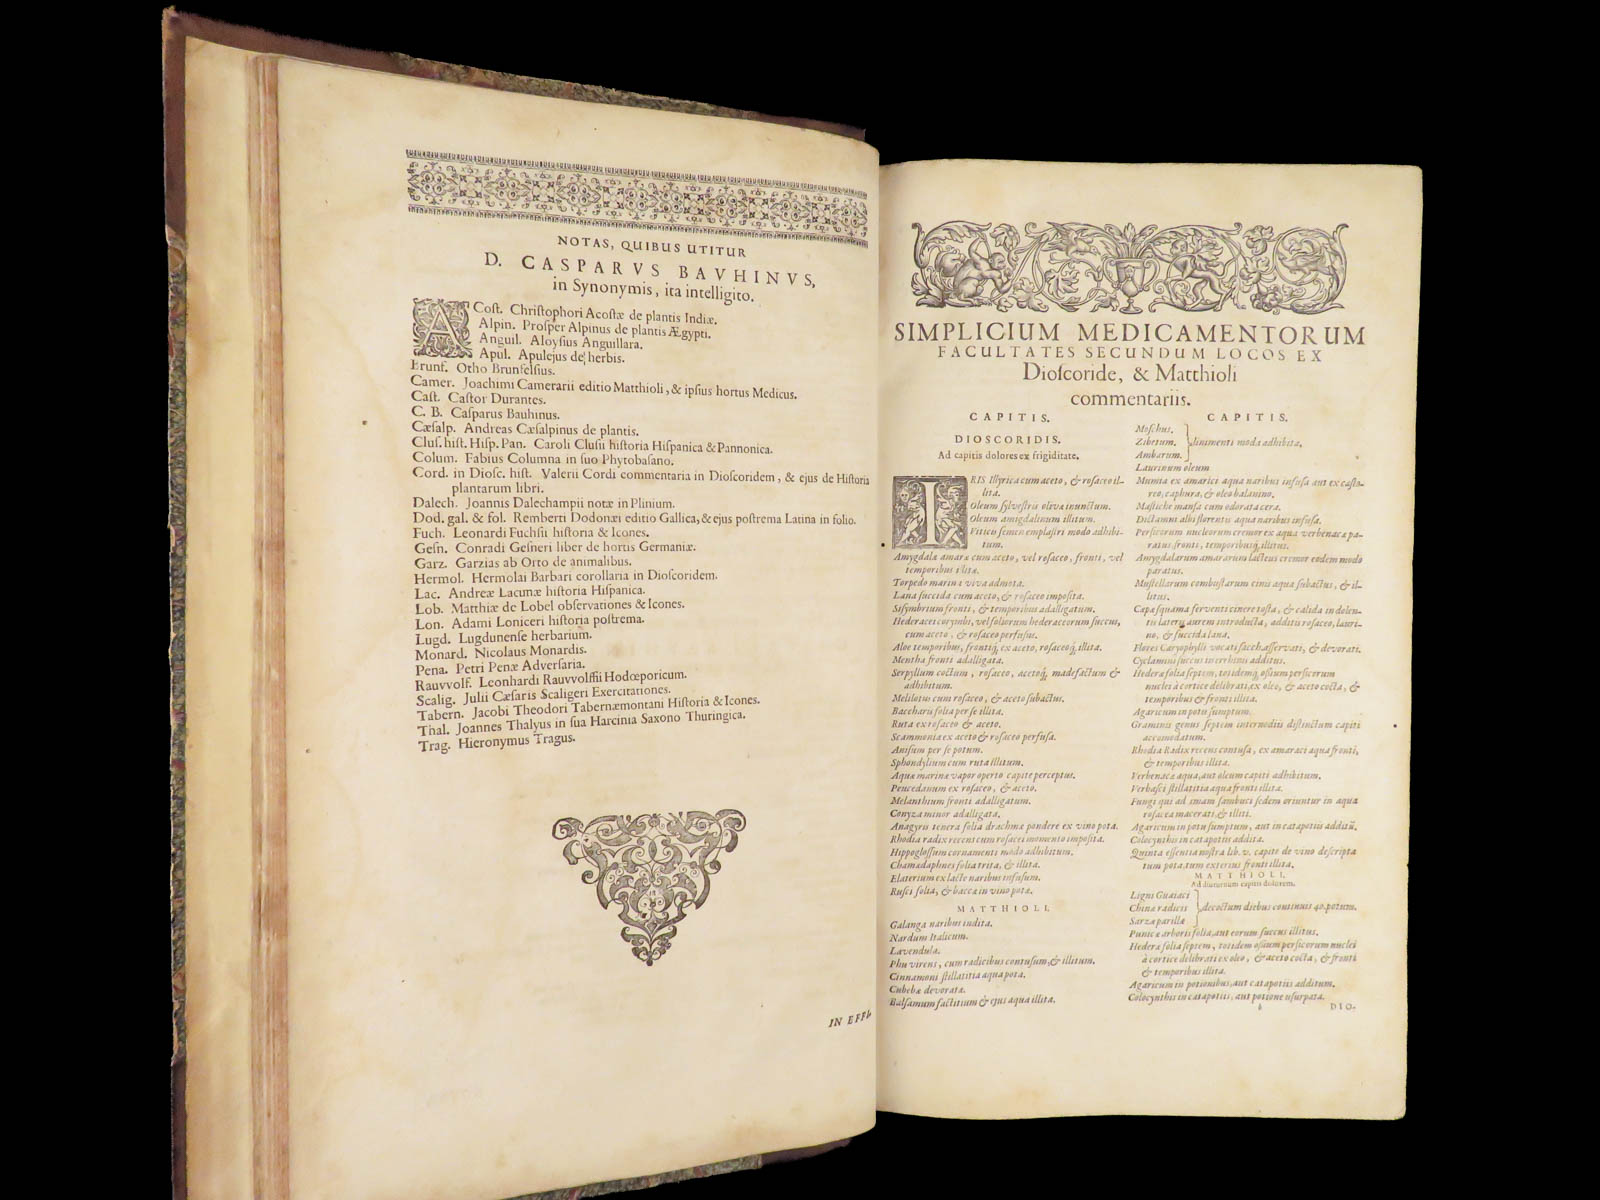 NOTAS, QUIBUS UTITUR
D. CASPARVS BAVHINVS,
in Synonymis, ita intelligito.
ACoſt. Chriſtophori Acoſtæ de plantis Indiæ.
Alpin. Proſper Alpinus de plantis Ægypti.
Anguil. Aloyſius Anguillara.
Apul. Apulejus de herbis.
Brunf. Otho Brunfelſius.
Camer. Joachimi Camerarii editio Matthioli, & ipſius hortus Medicus.
Caſt. Caſtor Durantes.
C. B. Caſparus Bauhinus.
Cæſalp. Andreas Cæſalpinus de plantis.
Cluſ. hiſt. Hiſp. Pan. Caroli Cluſii hiſtoria Hiſpanica & Pannonica.
Colum. Fabius Columna in ſuo Phytobaſano.
Cord. in Dioſc. hiſt. Valerii Cordi commentaria in Dioſcoridem, & ejus de Hiſtoria
plantarum libri.
Dalech. Joannis Dalechampii notæ in Plinium.
Dod. gal. & fol. Remberti Dodonæi editio Gallica, & ejus poſtrema Latina in folio.
Fuch. Leonardi Fuchſii hiſtoria & Icones.
Geſn. Conradi Geſneri liber de hortis Germaniæ.
Garz. Garzias ab Orto de animalibus.
Hermol. Hermolai Barbari corollaria in Dioſcoridem.
Lac. Andreæ Lacunæ hiſtoria Hiſpanica.
Lob. Matthiæ de Lobel obſervationes & Icones.
Lon. Adami Loniceri hiſtoria poſtrema.
Lugd. Lugdunenſe herbarium.
Monard. Nicolaus Monardis.
Pena. Petri Penæ Adverſaria.
Rauvvolf. Leonhardi Rauvvolffii Hodœporicum.
Scalig. Julii Cæſaris Scaligeri Exercitationes.
Tabern. Jacobi Theodori Tabernæmontani Hiſtoria & Icones.
Thal. Joannes Thalyus in ſua Harcinia Saxono Thuringica.
Trag. Hieronymus Tragus.
IN EFFI-
SIMPLICIUM MEDICAMENTORUM
FACULTATES SECUNDUM LOCOS EX
Dioſcoride, & Matthioli
commentariis.
CAPITIS.
DIOSCORIDIS.
Ad capitis dolores ex frigiditate.
IRIS Illyrica cum aceto, & roſaceo il-
lita.
Oleum ſylveſtris oliva inunctum.
Oleum amigdalinum illitum.
Viticis ſemen emplaſtri modo adhibi-
tum.
Amygdalæ amaræ cum aceto, vel roſaceo, fronti, vel
temporibus illita.
Torpedo marina viva admota.
Lana ſuccida cum aceto, & roſaceo impoſita.
Siſymbrium fronti, & temporibus adalligatum.
Hederacei corymbi, vel foliorum hederaceorum ſuccus,
cum aceto, & roſaceo perfuſus.
Aloe temporibus, frontiq́, ex aceto, roſaceoq́, illita.
Mentha fronti adalligata.
Serpyllum coctum, roſaceo, acetoq́, madefactum &
adhibitum.
Melilotus cum roſaceo, & aceto ſubactus.
Baccharis folia per ſe illita.
Ruta ex roſaceo & aceto.
Scammonia ex aceto & roſaceo perfuſa.
Aniſum per ſe potum.
Sphondylium cum ruta illitum.
Aquæ marinæ vapor operto capite perceptus.
Peucedanum ex roſaceo, & aceto.
Melanthium fronti adalligatum.
Conyza minor adalligata.
Anagyris tenera folia drachmæ pondere ex vino pota.
Rhodia radix recens cum roſacei momento impoſita.
Hippogloſſum cornamenti modo adhibitum.
Chamædaphnes folia trita, & illita.
Elaterium ex lacte naribus infuſum.
Ruſci folia, & baccæ in vino potæ.
MATTHIOLI.
Galanga naribus indita.
Nardum Italicum.
Lavendula.
Phu virens, cum radicibus contuſum, & illitum.
Cinnamoni ſtillatitia aqua pota.
Cubebæ devoratæ.
Balſamum factitium & ejus aqua illita.
CAPITIS.
Moſchus.
Zibetum. linimenti modo adhibita.
Ambarum.
Laurinum oleum
Mumia ex amarici aqua naribus infuſa aut ex caſto-
reo, caphura, & oleo balanino.
Maſtiche manſa cum odorata cera.
Dictamus albi florentis aqua naribus infuſa.
Perſicorum nucleorum cremor ex aqua verbenacæ pa-
ratus fronti, temporibusq́, illitus.
Amygdalarum amararum lacteus cremor eodem modo
paratus.
Muſtellarum combuſtarum cinis aqua ſubactus, & il-
litus.
Capæ ſquama ferventi cinere toſta, & calida in dolen-
tis lateris aurem introducta, additis roſaceo, lauri-
no, & ſuccida lana.
Flores Caryophylli vocati ſacch. aſſervati, & devorati.
Cyclamini ſuccus in errhinis additus.
Hederæ folia ſeptem, totidemq́, oſſium perſicorum
nuclei à cortice delibrati, ex oleo, & aceto cocta, &
temporibus & fronti illita.
Agaricum in potu ſumptum.
Graminis genus ſeptem internodiis diſtinctum capiti
accomodatum.
Rhodia Radix recens contuſa, ex amaraci aqua fronti,
& temporibus illita.
Verbenacæ aqua, aut oleum capiti adhibitum.
Verbaſci ſtillatitia aqua fronti illita.
Fungi qui ad imam ſambuci ſedem oriuntur in aqua
roſacea macerati, & illiti.
Agaricum in potu ſumptum, aut in catapotiis additū.
Colocynthis in catapotiis addita.
Quinta eſſentia noſtra lib. v. capite de vino deſcripta
tum pota, tum exterius fronti illita.
MATTHIOLI.
Ad diuturnum capitis dolorem.
Ligni Guaiaci
Chinæ radicis decoctum diebus continuis 40. potum.
Sarzæparillæ
Punicæ arboris folia, aut eorum ſuccus illitus.
Hederæ folia ſeptem, totidem oſſium perſicorum nuclei
à cortice delibrati ex oleo, & aceto cocta, & fronti
& temporibus illita.
Agaricum in potionibus, aut catapotiis additum.
Colocynthis in catapotiis, aut potione uſurpata.
DIO-